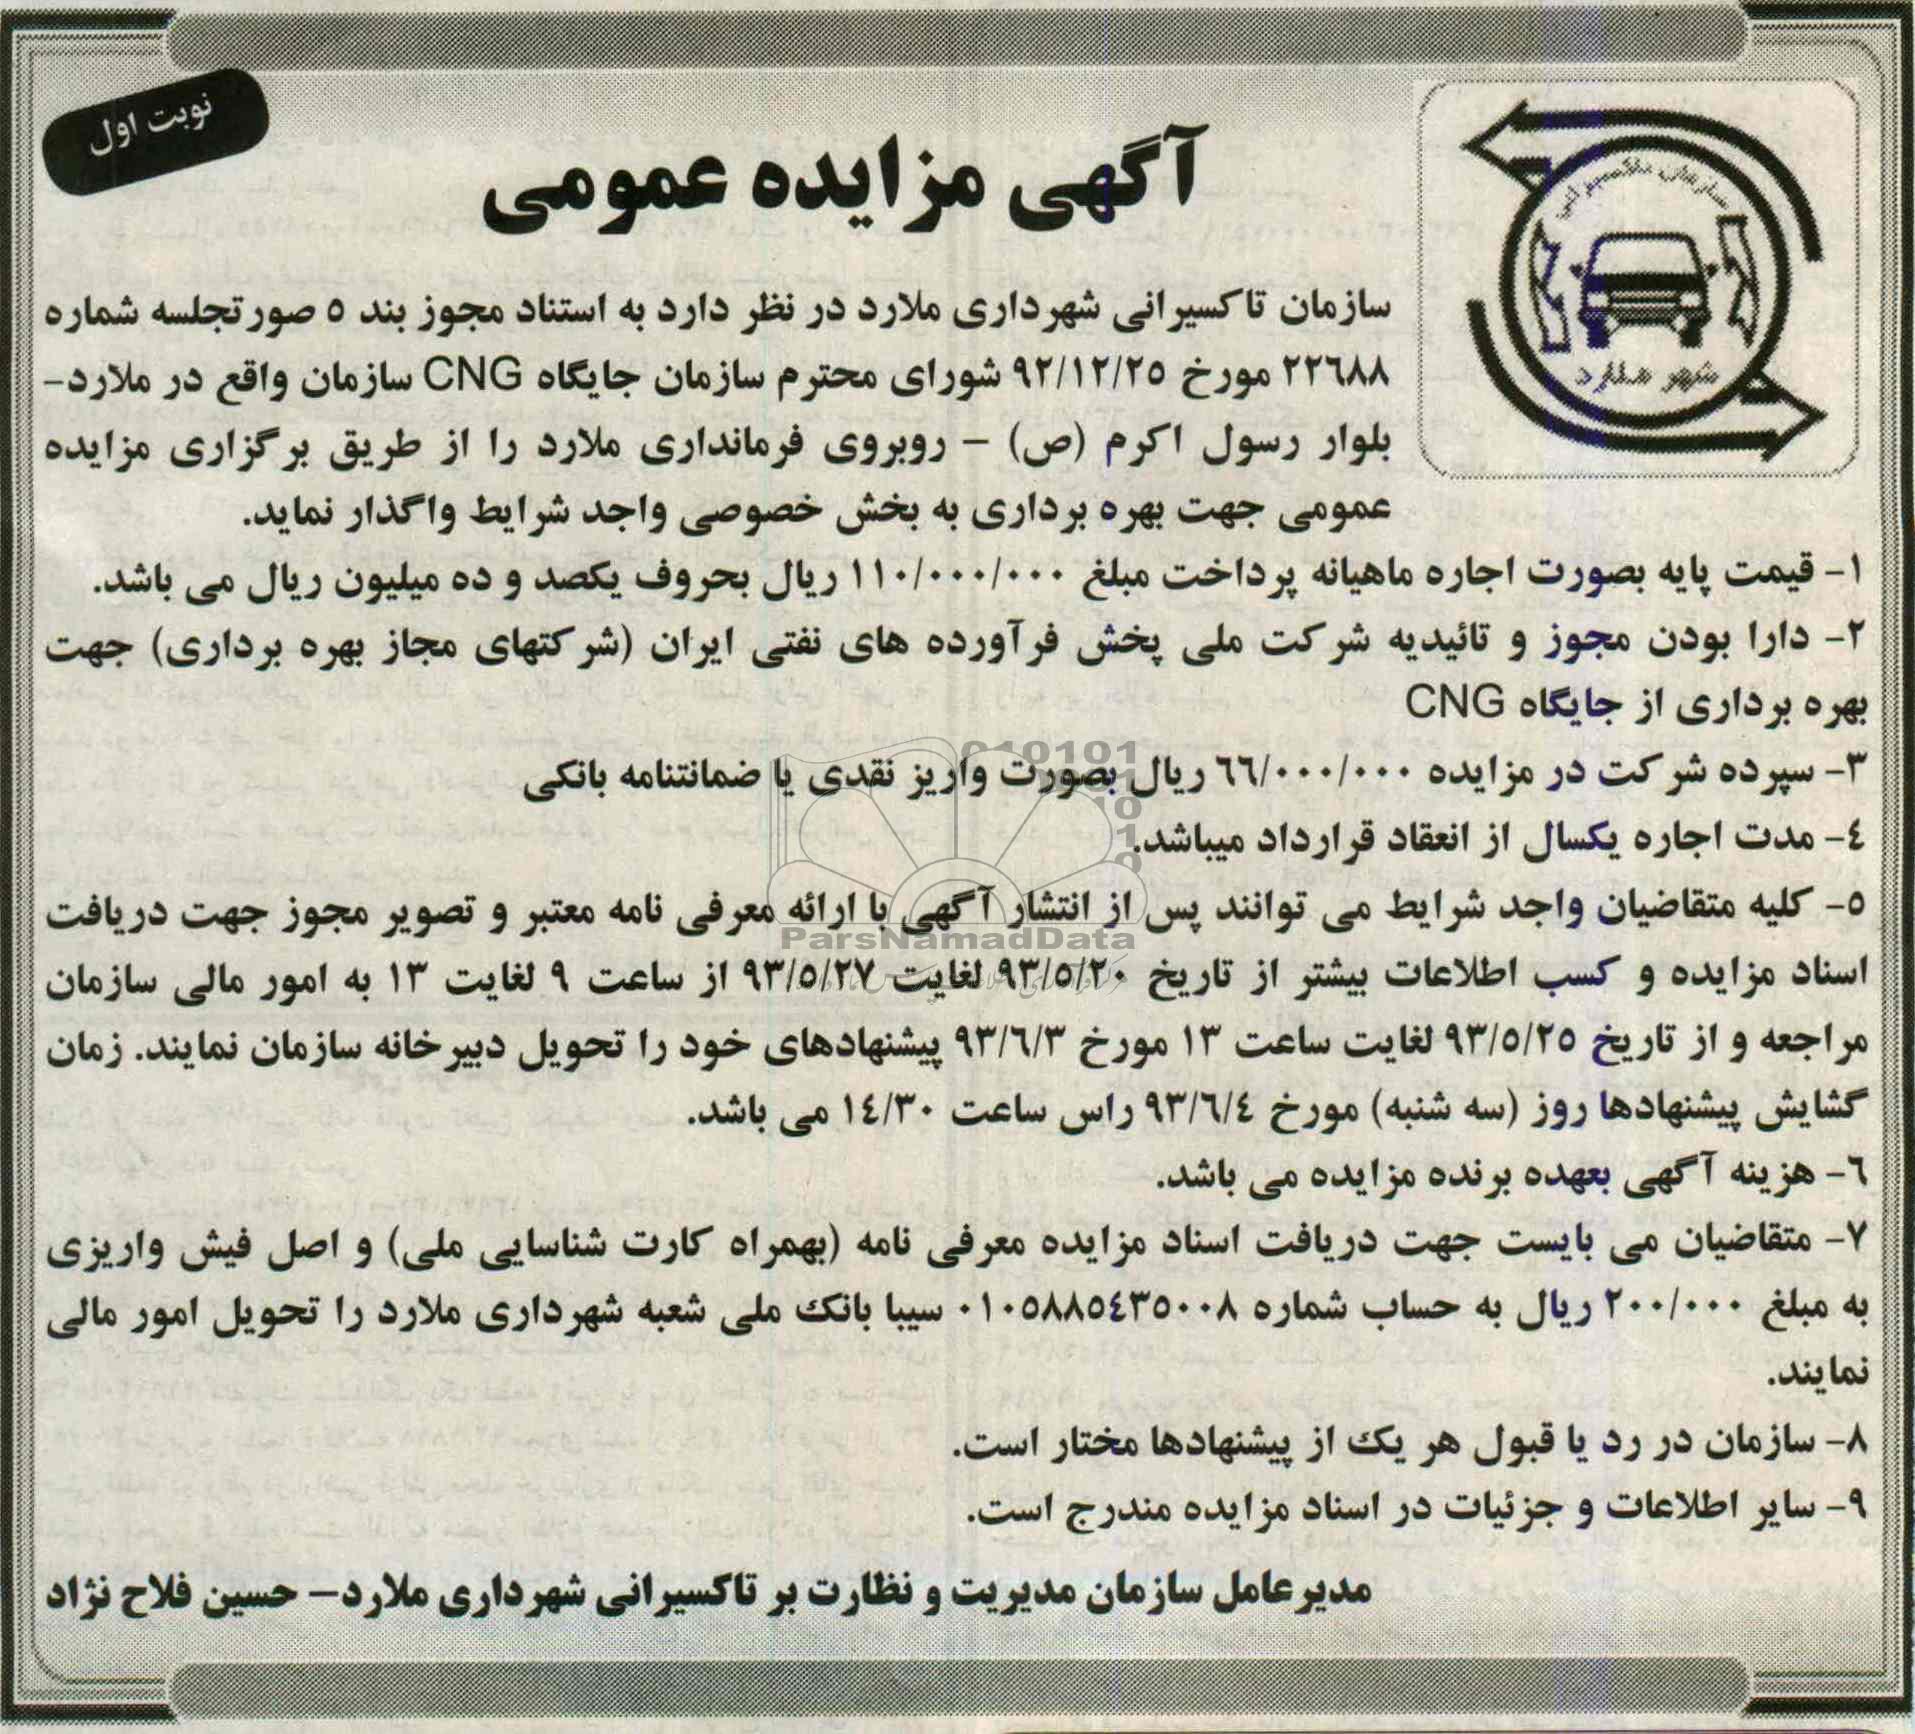 نوبت اول
آگهی مزایده عمومی
سازمان تاکسیرانی
شهر ملارد
سازمان تاکسیرانی شهرداری ملارد در نظر دارد به استناد مجوز بند ٥ صورتجلسه شماره
٢٢٦٨٨ مورخ ٩٢/١٢/٢٥ شورای محترم سازمان جایگاه CNG سازمان واقع در ملارد-
بلوار رسول اکرم (ص) - روبروی فرمانداری ملارد را از طریق برگزاری مزایده
عمومی جهت بهره برداری به بخش خصوصی واجد شرایط واگذار نماید.
١- قیمت پایه بصورت اجاره ماهیانه پرداخت مبلغ ١١٠/٠٠٠/٠٠٠ ریال بحروف یکصد و ده میلیون ریال می باشد.
٢- دارا بودن مجوز و تائیدیه شرکت ملی پخش فرآورده های نفتی ایران (شرکتهای مجاز بهره برداری) جهت
بهره برداری از جایگاه CNG
٣- سپرده شرکت در مزایده ٦٦/٠٠٠/٠٠٠ ریال بصورت واریز نقدی یا ضمانتنامه بانکی
٤- مدت اجاره یکسال از انعقاد قرارداد میباشد.
٥- کلیه متقاضیان واجد شرایط می توانند پس از انتشار آگهی با ارائه معرفی نامه معتبر و تصویر مجوز جهت دریافت
ParsNamadData
اسناد مزایده و کسب اطلاعات بیشتر از تاریخ ٩٣/٥/٢٠ لغایت ٩٣/٥/٢٧ از ساعت ٩ لغایت ١٣ به امور مالی سازمان
مراجعه و از تاریخ ٩٣/٥/٢٥ لغایت ساعت ١٣ مورخ ٩٣/٦/٣ پیشنهادهای خود را تحویل دبیرخانه سازمان نمایند. زمان
گشایش پیشنهادها روز (سه شنبه) مورخ ٩٣/٦/٤ راس ساعت ١٤/٣٠ می باشد.
٦- هزینه آگهی بعهده برنده مزایده می باشد.
٧- متقاضیان می بایست جهت دریافت اسناد مزایده معرفی نامه (بهمراه کارت شناسایی ملی) و اصل فیش واریزی
به مبلغ ٢٠٠/٠٠٠ ریال به حساب شماره ٠١٠٥٨٨٥٤٣٥٠٠٨ سیبا بانک ملی شعبه شهرداری ملارد را تحویل امور مالی
نمایند.
٨- سازمان در رد یا قبول هر یک از پیشنهادها مختار است.
٩- سایر اطلاعات و جزئیات در اسناد مزایده مندرج است.
مدیرعامل سازمان مدیریت و نظارت بر تاکسیرانی شهرداری ملارد- حسین فلاح نژاد